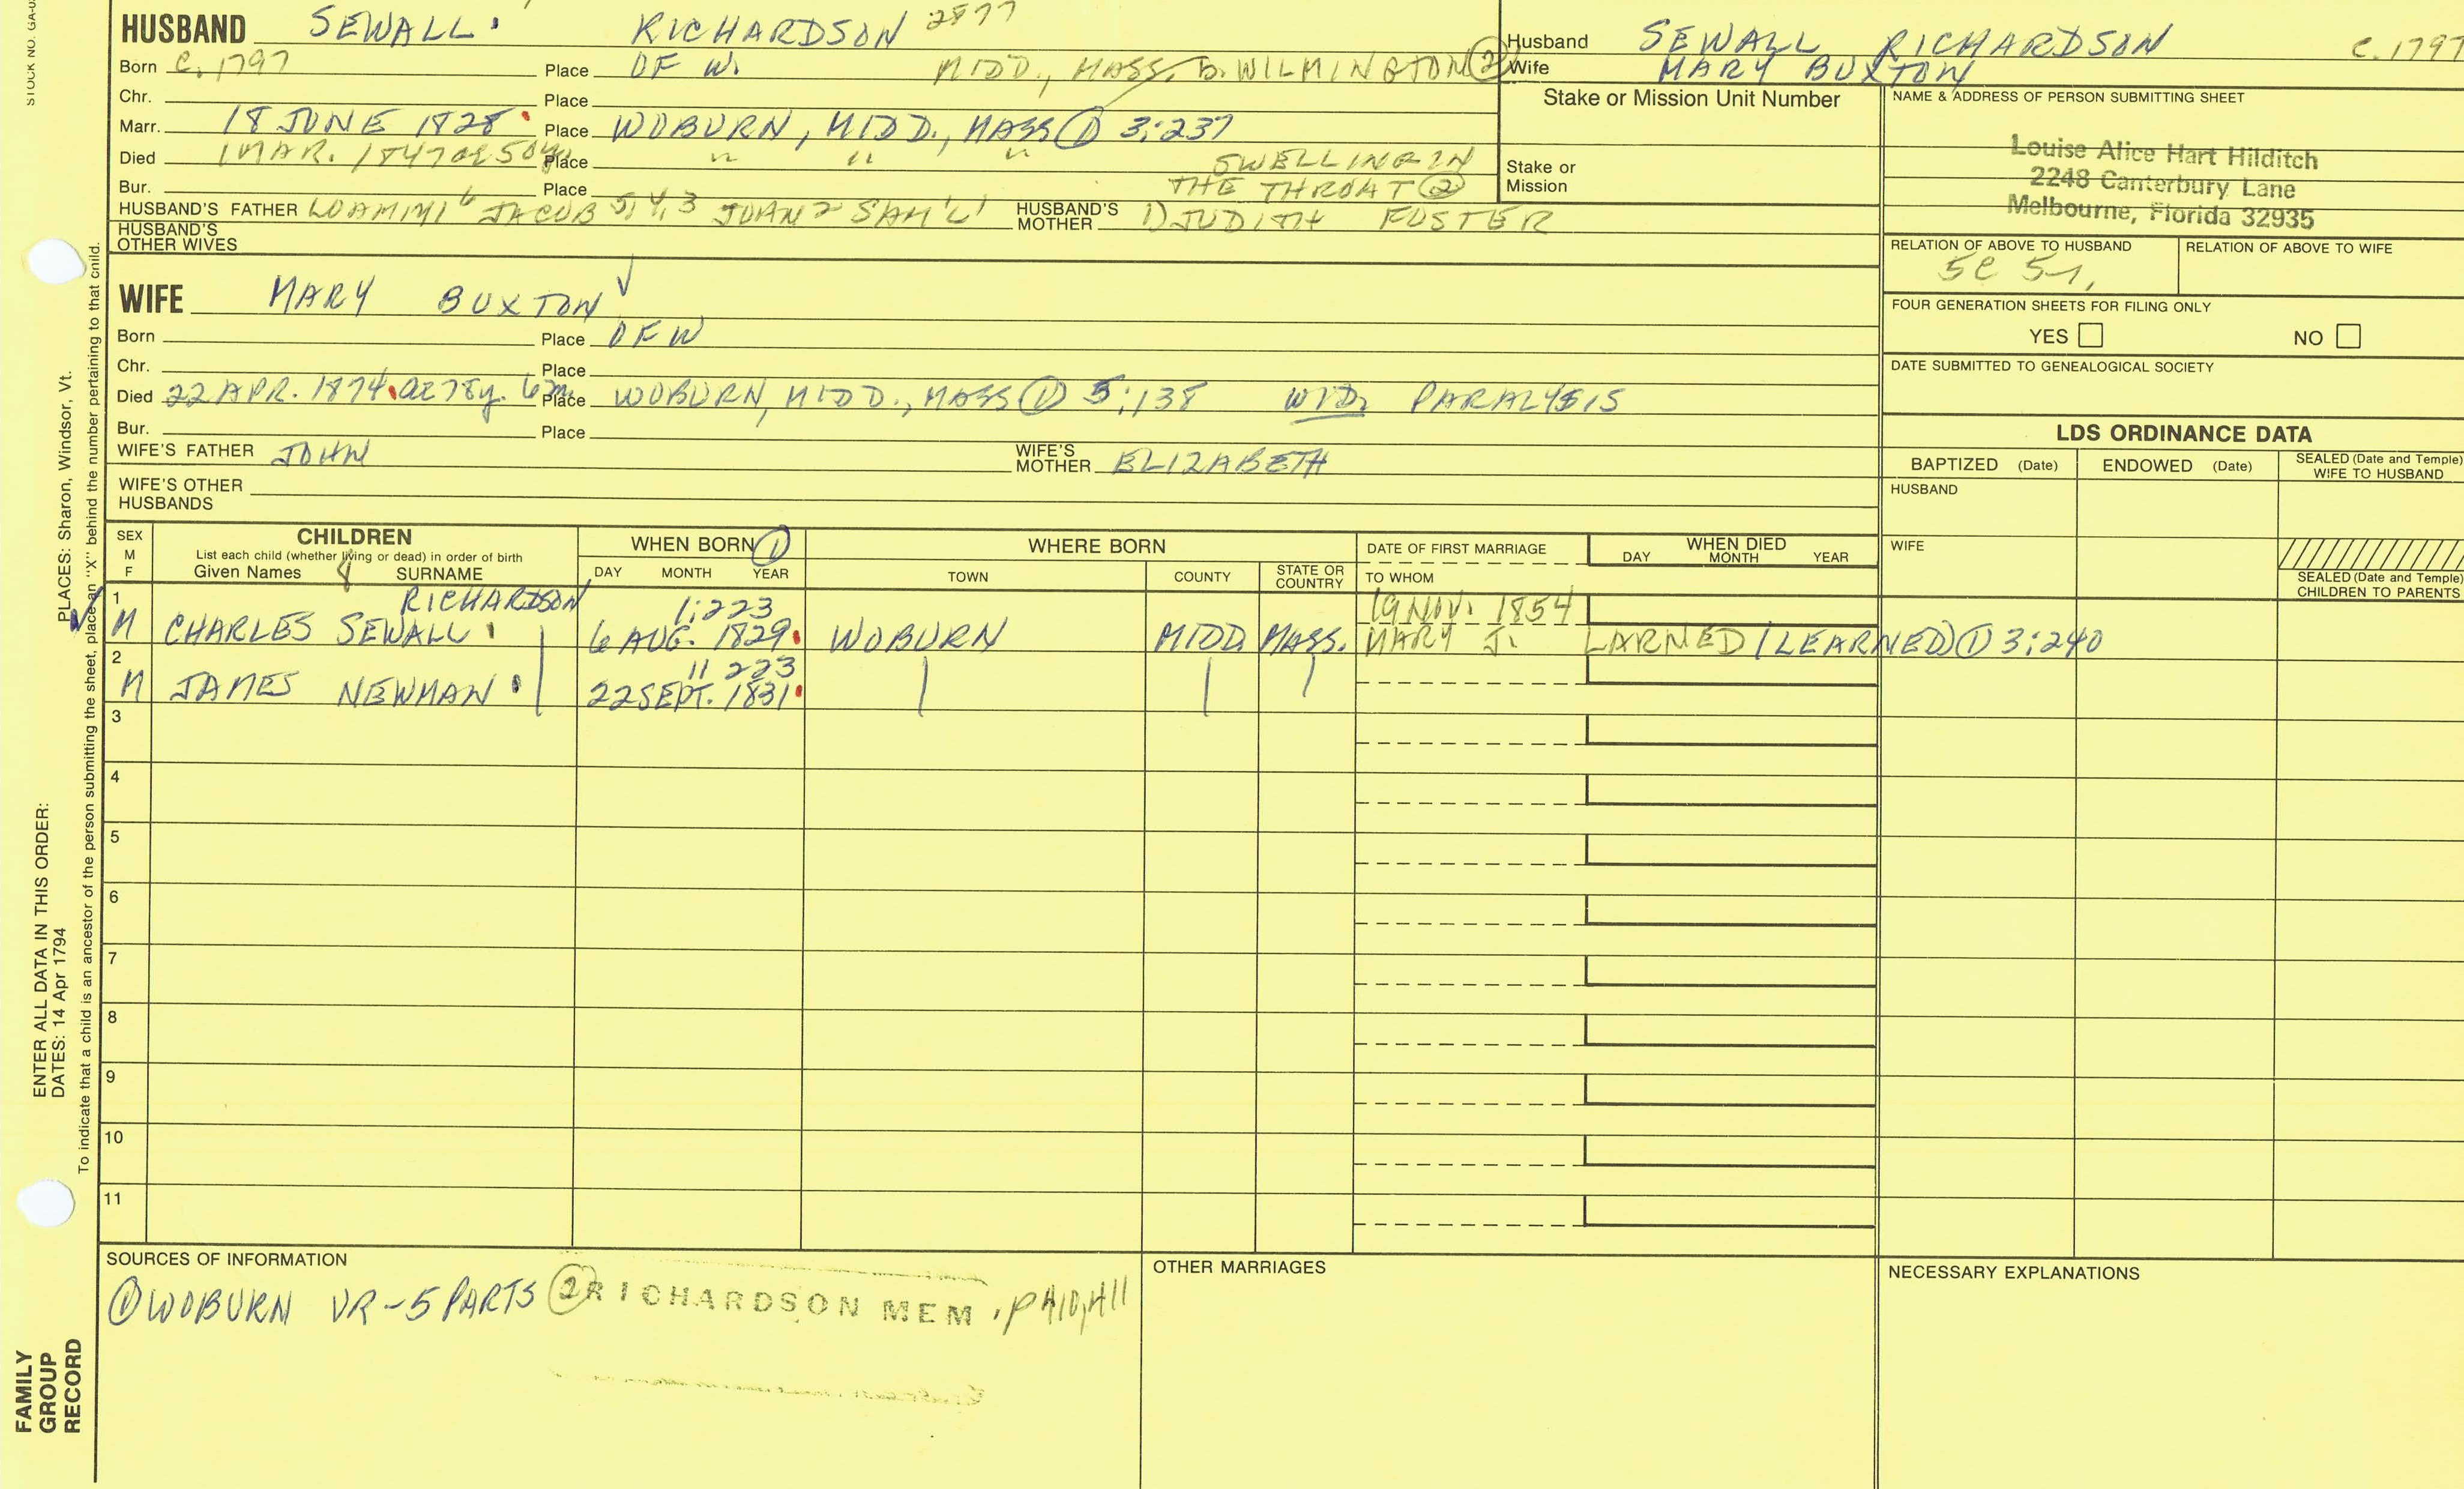 HUSBAND SEWALL. RICHARDSON 2877
Born C. 1797 Place OF W. MIDD., MASS. b. WILMINGTON ②
Chr. Place
Marr. 18 JUNE 1828 Place WOBURN, MIDD., MASS ① 3:237
Died 1 MAR. 1847 ae 50y Place " " " SWELLING IN THE THROAT ②
Bur. Place
HUSBAND'S FATHER LOAMMI 6 JACOB 5,4,3 JOHN 2 SAM'L 1 HUSBAND'S MOTHER 1) JUDITH FOSTER
HUSBAND'S OTHER WIVES
WIFE MARY BUXTON ✓
Born Place OF W
Chr. Place
Died 22 APR. 1874 ae 78y. 6m. Place WOBURN, MIDD., MASS ① 5:138 WID. PARALYSIS
Bur. Place
WIFE'S FATHER JOHN WIFE'S MOTHER ELIZABETH
WIFE'S OTHER HUSBANDS
Husband SEWALL RICHARDSON C. 1797
Wife MARY BUXTON
Stake or Mission Unit Number
Stake or Mission
NAME & ADDRESS OF PERSON SUBMITTING SHEET
Louise Alice Hart Hilditch
2248 Canterbury Lane
Melbourne, Florida 32935
RELATION OF ABOVE TO HUSBAND RELATION OF ABOVE TO WIFE
5C 5r,
FOUR GENERATION SHEETS FOR FILING ONLY
YES NO
DATE SUBMITTED TO GENEALOGICAL SOCIETY
LDS ORDINANCE DATA
BAPTIZED (Date) ENDOWED (Date) SEALED (Date and Temple) WIFE TO HUSBAND
HUSBAND
WIFE
SEALED (Date and Temple) CHILDREN TO PARENTS
SEX M F CHILDREN WHEN BORN ① WHERE BORN DATE OF FIRST MARRIAGE WHEN DIED
List each child (whether living or dead) in order of birth
Given Names 8 SURNAME DAY MONTH YEAR TOWN COUNTY STATE OR COUNTRY TO WHOM DAY MONTH YEAR
1 RICHARDSON 1:223 19 NOV. 1854
✓ M CHARLES SEWALL 6 AUG. 1829 WOBURN MIDD. MASS. MARY J. LARNED (LEARNED) ① 3:240
2 11 223
M JAMES NEWMAN 22 SEPT. 1831
3
4
5
6
7
8
9
10
11
SOURCES OF INFORMATION
① WOBURN VR-5 PARTS ② RICHARDSON MEM, p 410, 411
OTHER MARRIAGES
NECESSARY EXPLANATIONS
STOCK NO. GA-0
PLACES: Sharon, Windsor, Vt.
ENTER ALL DATA IN THIS ORDER:
DATES: 14 Apr 1794
To indicate that a child is an ancestor of the person submitting the sheet, place an "X" behind the number pertaining to that child.
FAMILY
GROUP
RECORD